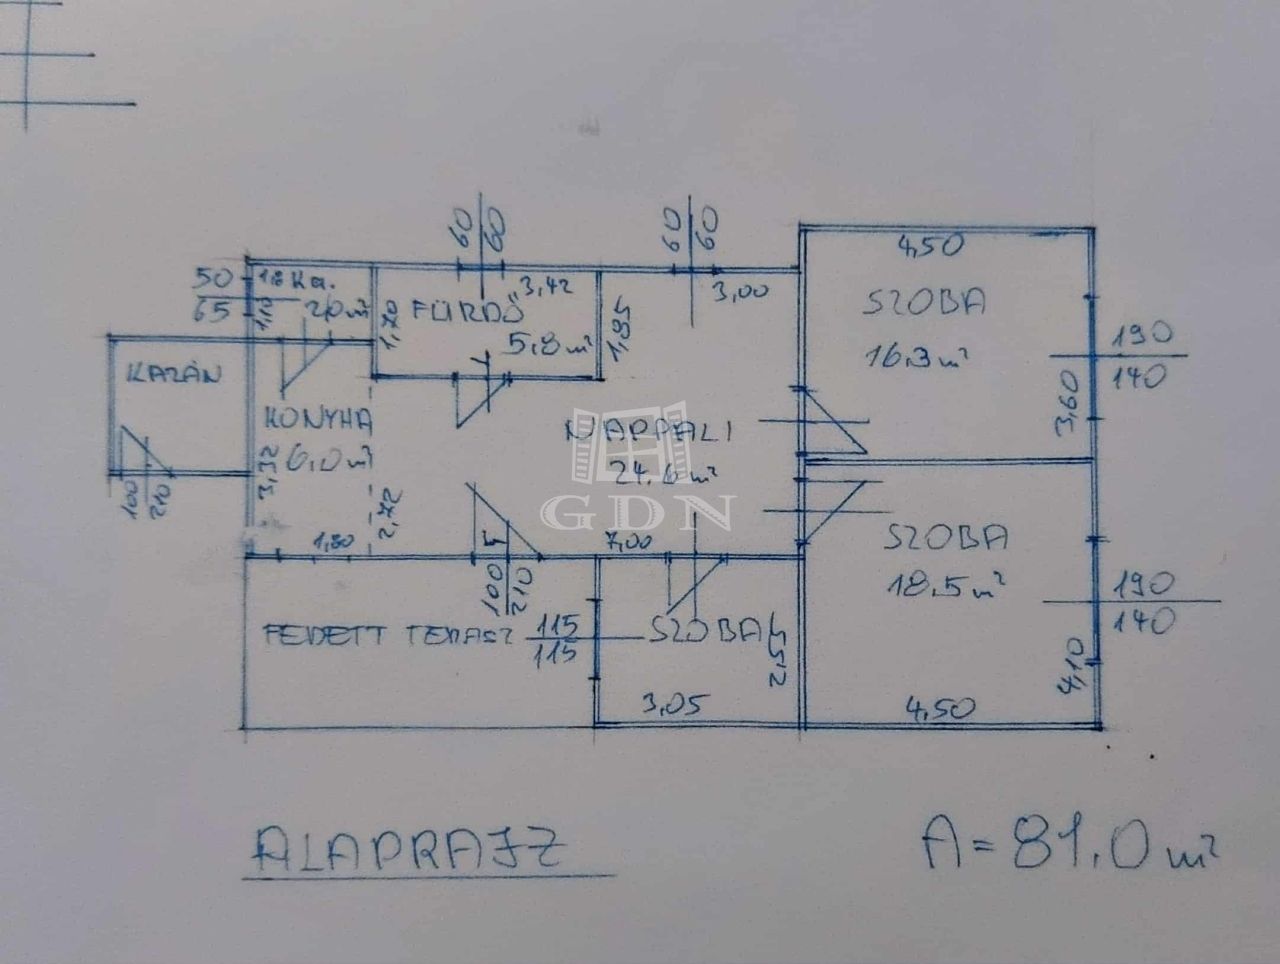 60
60
60
60
50
65
1,10
2,0 m²
1,70
FÜRDŐ
3,42
5,8 m²
1,95
3,00
4,50
SZOBA
16,3 m²
3,60
190
140
KAZÁN
100
210
KONYHA
6,0 m²
3,32
2,72
1,80
NAPPALI
24,6 m²
GDN
7,00
100
210
SZOBA
18,5 m²
190
140
4,10
4,50
FEDETT TERASZ
115
115
SZOBA
2,54
3,05
ALAPRAJZ
A = 81,0 m²